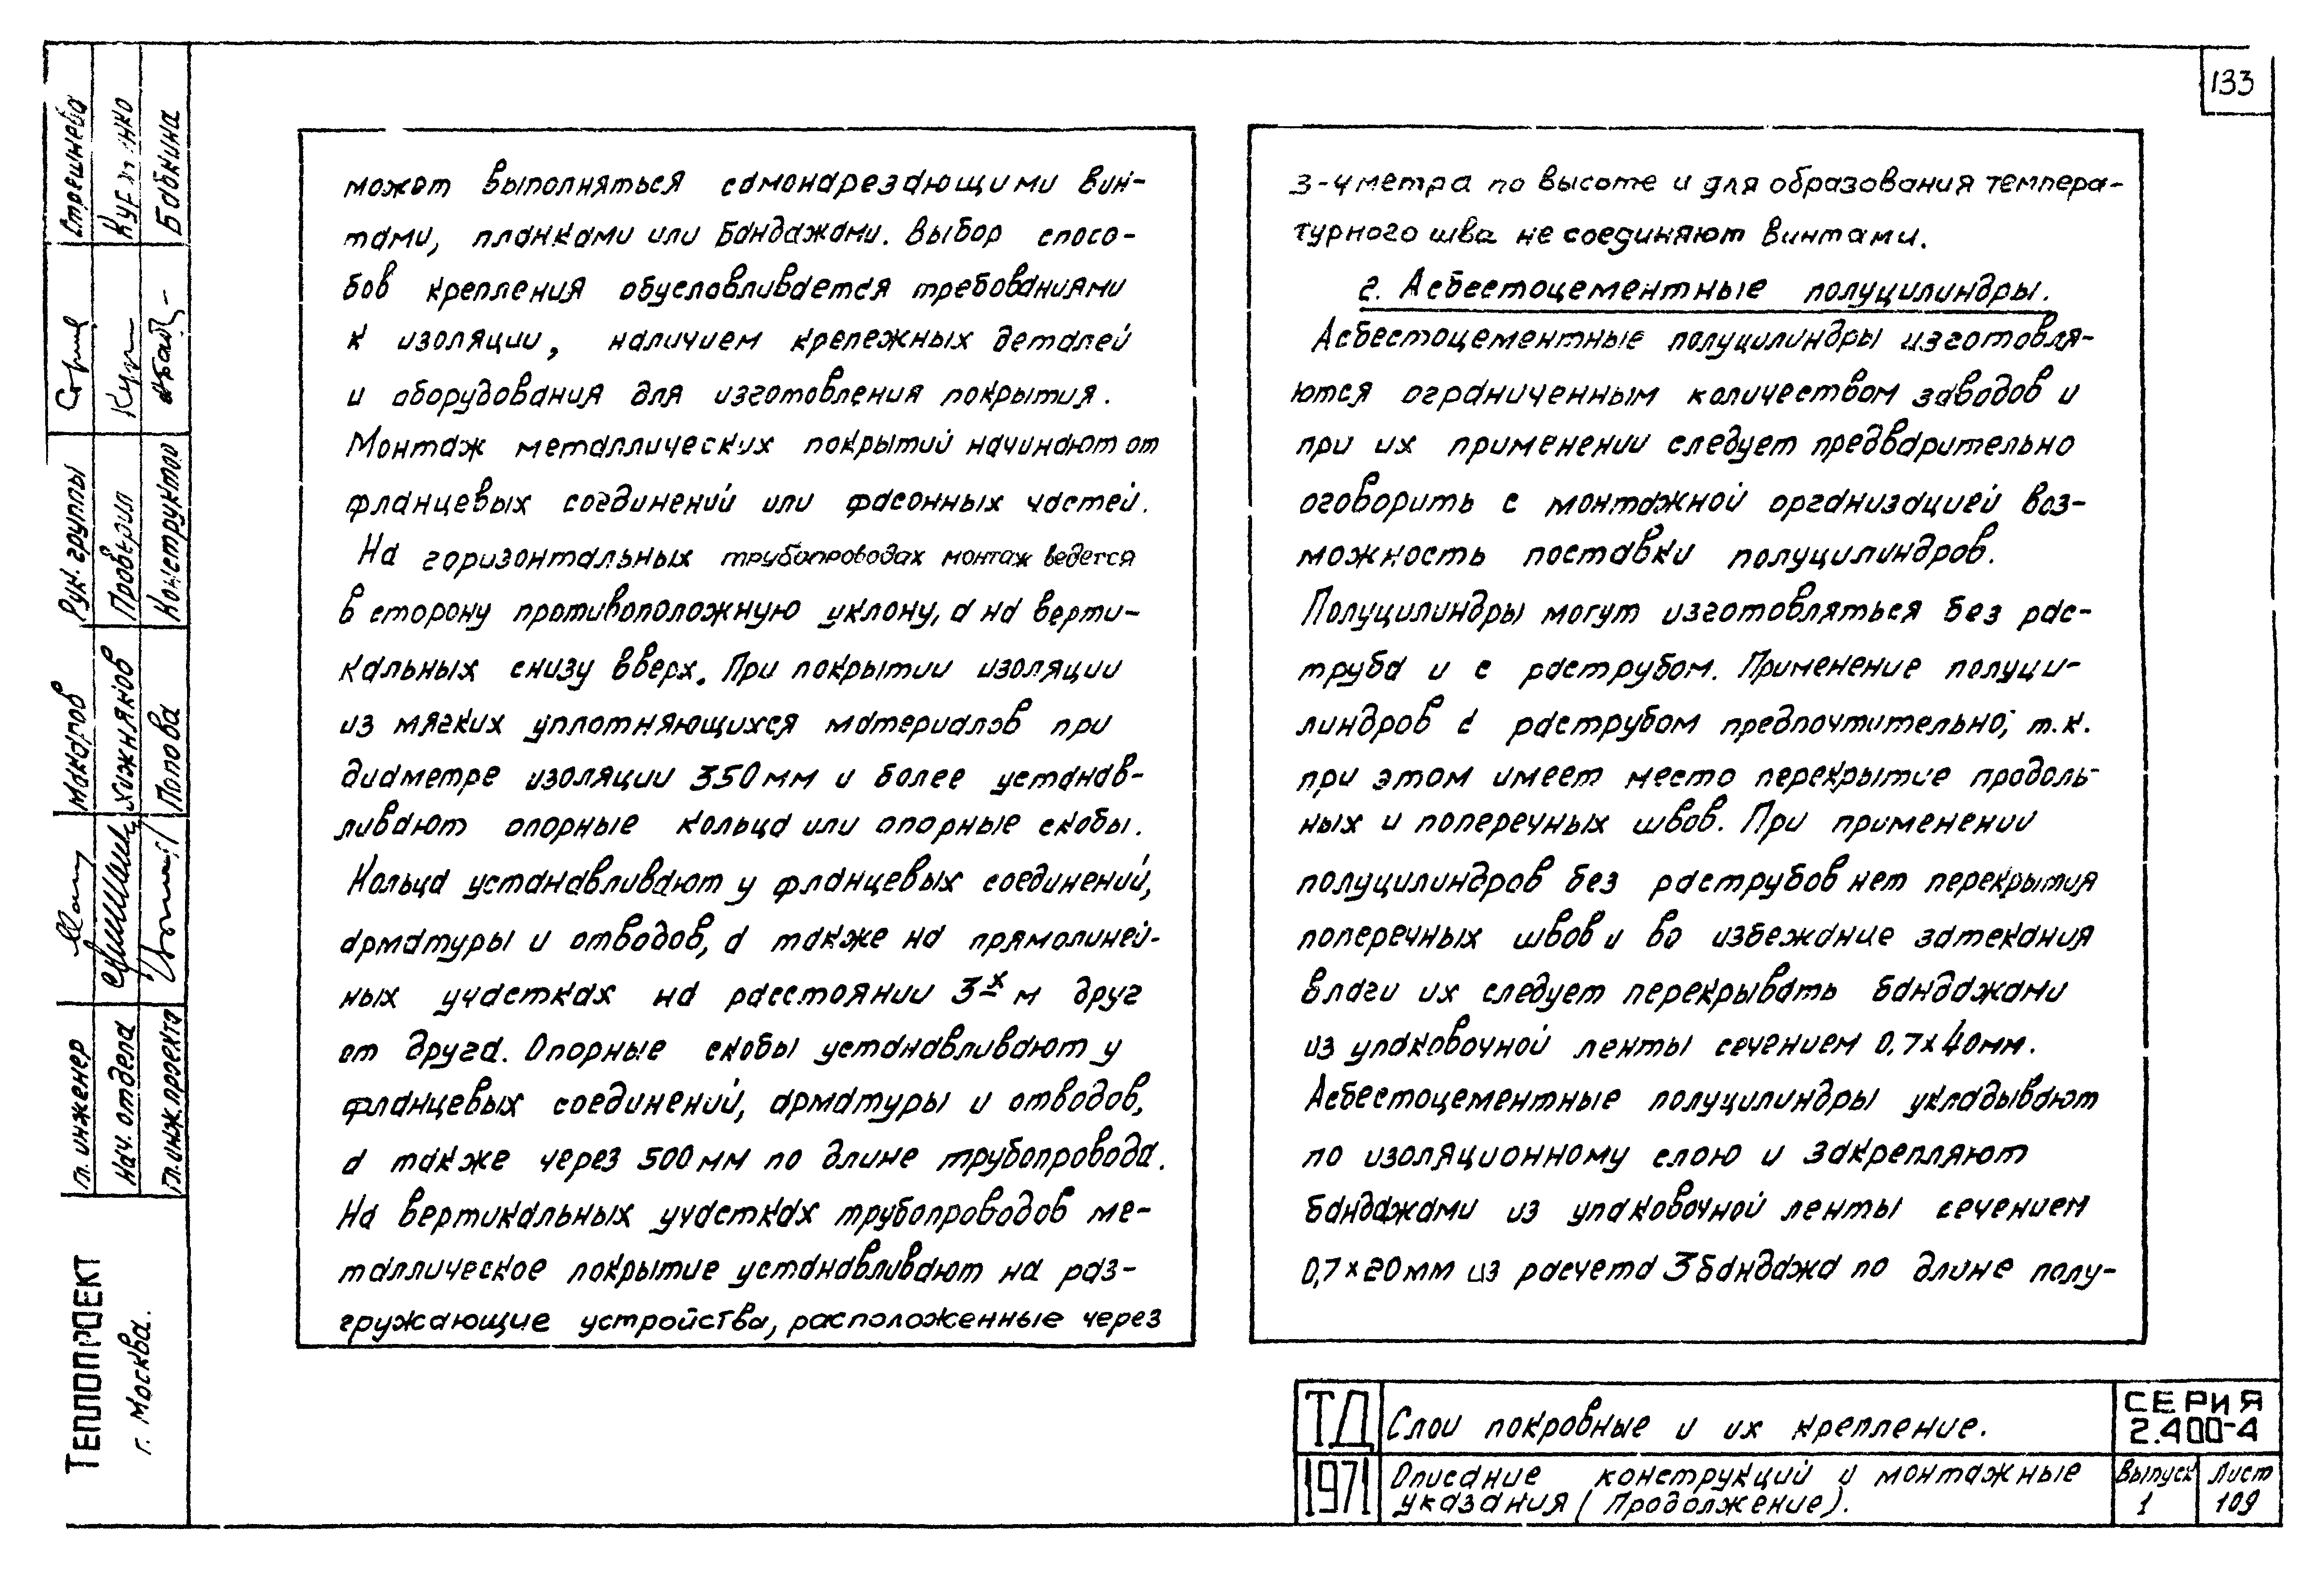 133
может выполняться самонарезающими вин-
тами, планками или бандажами. Выбор спосо-
бов крепления обусловливается требованиями
к изоляции, наличием крепежных деталей
и оборудования для изготовления покрытия.
Монтаж металлических покрытий начинают от
фланцевых соединений или фасонных частей.
На горизонтальных трубопроводах монтаж ведется
в сторону противоположную уклону, а на верти-
кальных снизу вверх. При покрытии изоляции
из мягких уплотняющихся материалов при
диаметре изоляции 350 мм и более устанав-
ливают опорные кольца или опорные скобы.
Кольца устанавливают у фланцевых соединений,
арматуры и отводов, а также на прямолиней-
ных участках на расстоянии 3-х м друг
от друга. Опорные скобы устанавливают у
фланцевых соединений, арматуры и отводов,
а также через 500 мм по длине трубопровода.
На вертикальных участках трубопроводов ме-
таллическое покрытие устанавливают на раз-
гружающие устройства, расположенные через
3-4 метра по высоте и для образования темпера-
турного шва не соединяют винтами.
г. Асбестоцементные полуцилиндры.
Асбестоцементные полуцилиндры изготовля-
ются ограниченным количеством заводов и
при их применении следует предварительно
оговорить с монтажной организацией воз-
можность поставки полуцилиндров.
Полуцилиндры могут изготовляться без рас-
труба и с раструбом. Применение полуци-
линдров с раструбом предпочтительно, т.к.
при этом имеет место перекрытие продоль-
ных и поперечных швов. При применении
полуцилиндров без раструбов нет перекрытия
поперечных швов и во избежание затекания
влаги их следует перекрывать бандажами
из упаковочной ленты сечением 0,7×40мм.
Асбестоцементные полуцилиндры укладывают
по изоляционному слою и закрепляют
бандажами из упаковочной ленты сечением
0,7×20мм из расчета 3 бандажа по длине полу-
ТД
Слои покровные и их крепление.
СЕРИЯ
2.400-4
1971
Описание конструкций и монтажные
указания (Продолжение).
Выпуск
1
Лист
109
Теплопроект
г. Москва.
гл. инженер
Макаров
Рук. группы
Стрешнева
Нач. отдела
Хижняков
Проверил
гл. инж. проекта
Попова
Конструктор
Бабкина